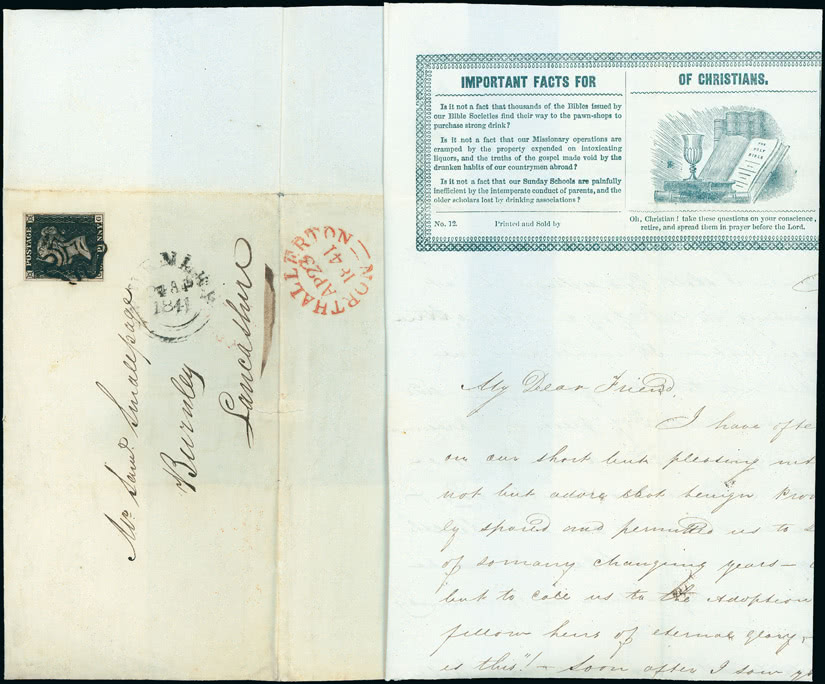 POSTAGE
1841
NORTHALLERTON
AP 23
1841
Mr. Saml. Smalepage
Burnley
Lancashire
IMPORTANT FACTS FOR
Is it not a fact that thousands of the Bibles issued by
our Bible Societies find their way to the pawn-shops to
purchase strong drink?
Is it not a fact that our Missionary operations are
cramped by the property expended on intoxicating
liquors, and the truths of the gospel made void by the
drunken habits of our countrymen abroad?
Is it not a fact that our Sunday Schools are painfully
inefficient by the intemperate conduct of parents, and the
older scholars lost by drinking associations?
No. 12. Printed and Sold by
OF CHRISTIANS.
THE
HOLY
BIBLE
Oh, Christian! take these questions on your conscience,
retire, and spread them in prayer before the Lord.
My Dear Friend,
I have ofte
on our short but pleasing
not but adore that benign Prov
ly spared and permitted us to
of somany changing years—
but to call us to the Adoption
fellow heirs of eternal glory,
is this"!— Soon after I saw